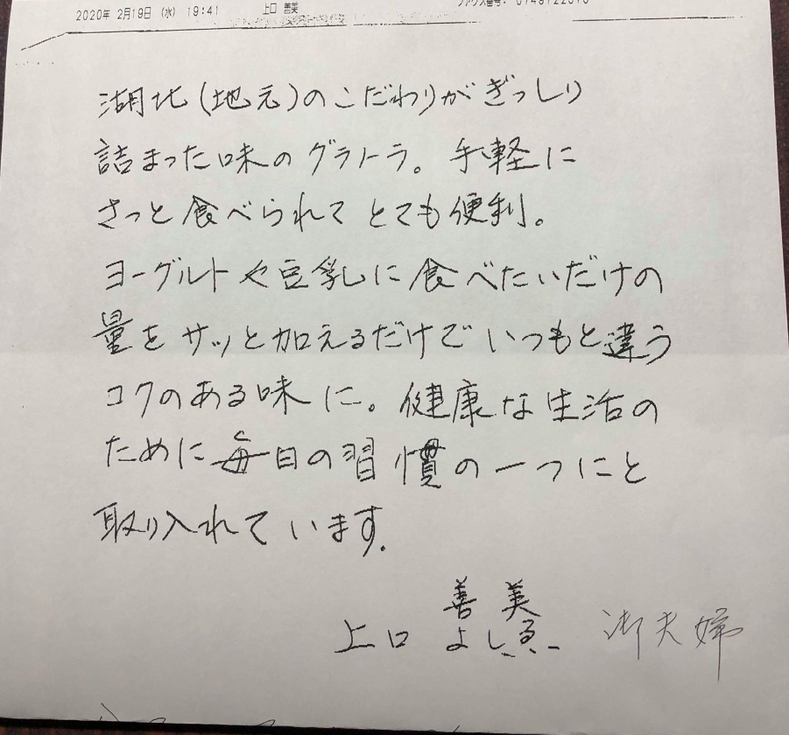 2020年 2月19日 (水) 19:41 上口 善美
湖北(地元)のこだわりがぎっしり
詰まった味のグラノーラ。手軽に
さっと食べられてとても便利。
ヨーグルトや豆乳に食べたいだけの
量をサッと加えるだけでいつもと違う
コクのある味に。健康な生活の
ために毎日の習慣の一つにと
取り入れています。
善美
上口 よしみ 御夫婦